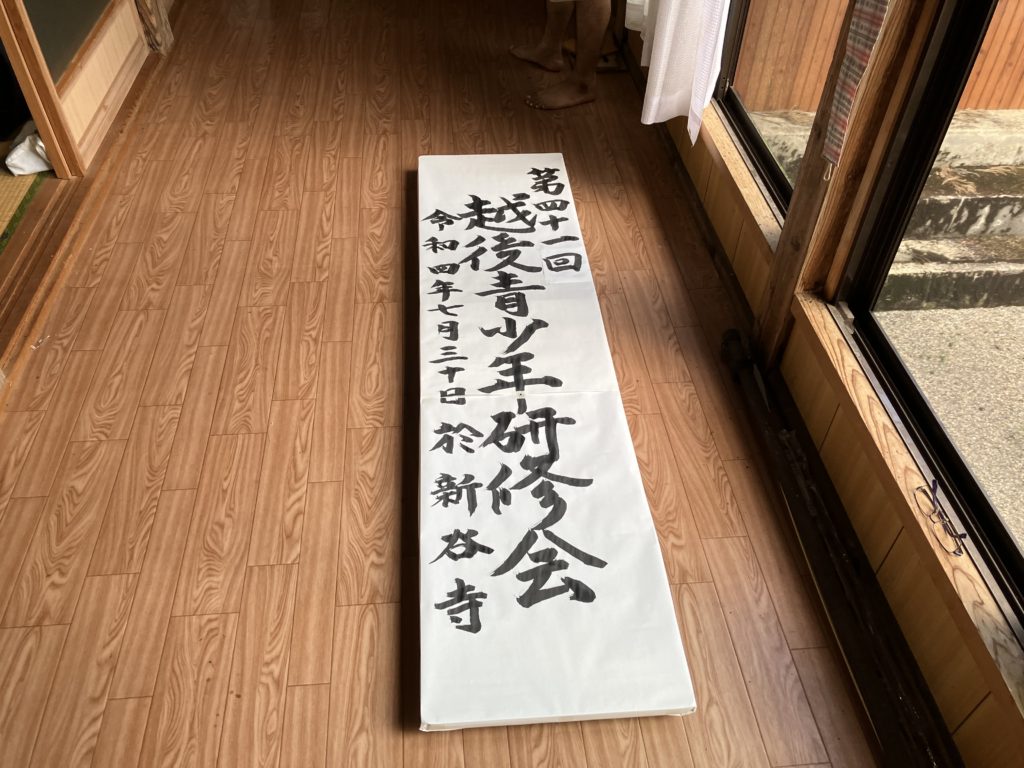 第四十一回
越後青少年研修会
令和四年七月三十日 於新啓寺